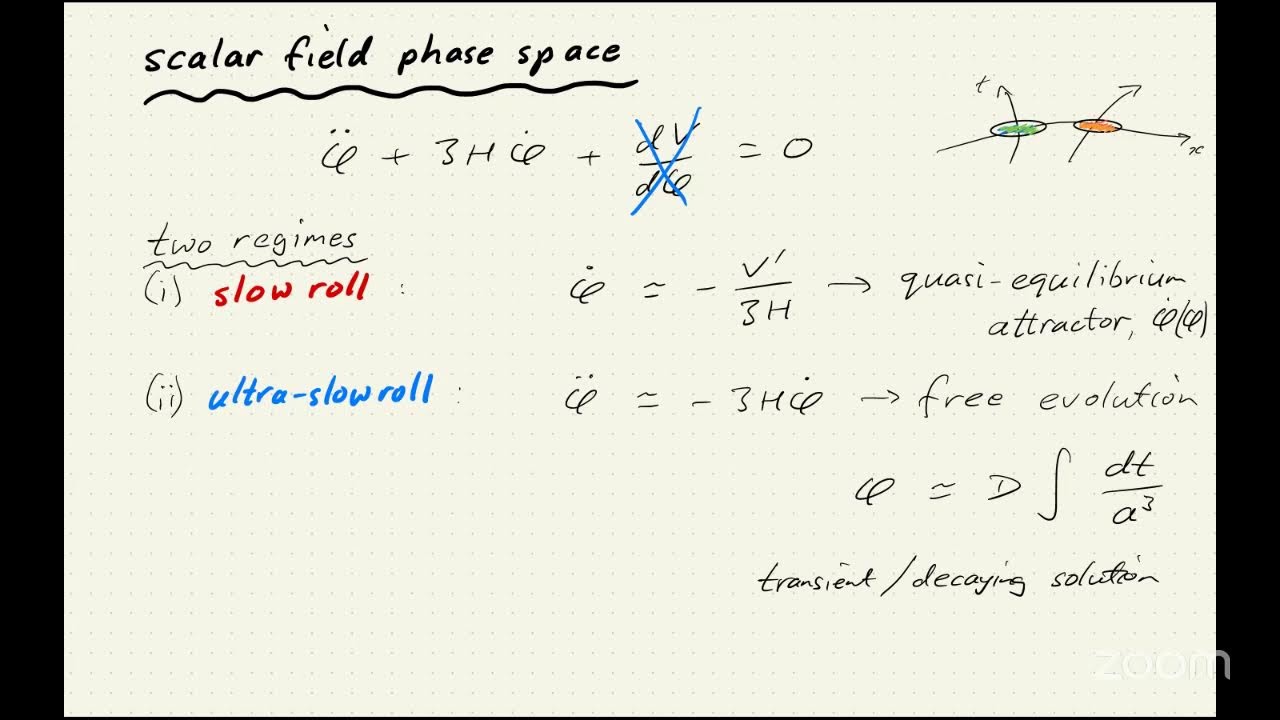 scalar field phase space
t
x
φ̈ + 3Hφ̇ + dV/dφ = 0
two regimes
(i) slow roll : φ̇ ≃ - V'/3H → quasi-equilibrium
attractor, φ̇(φ)
(ii) ultra-slow roll : φ̈ ≃ - 3Hφ̇ → free evolution
φ ≃ D ∫ dt/a³
transient/decaying solution
zoom